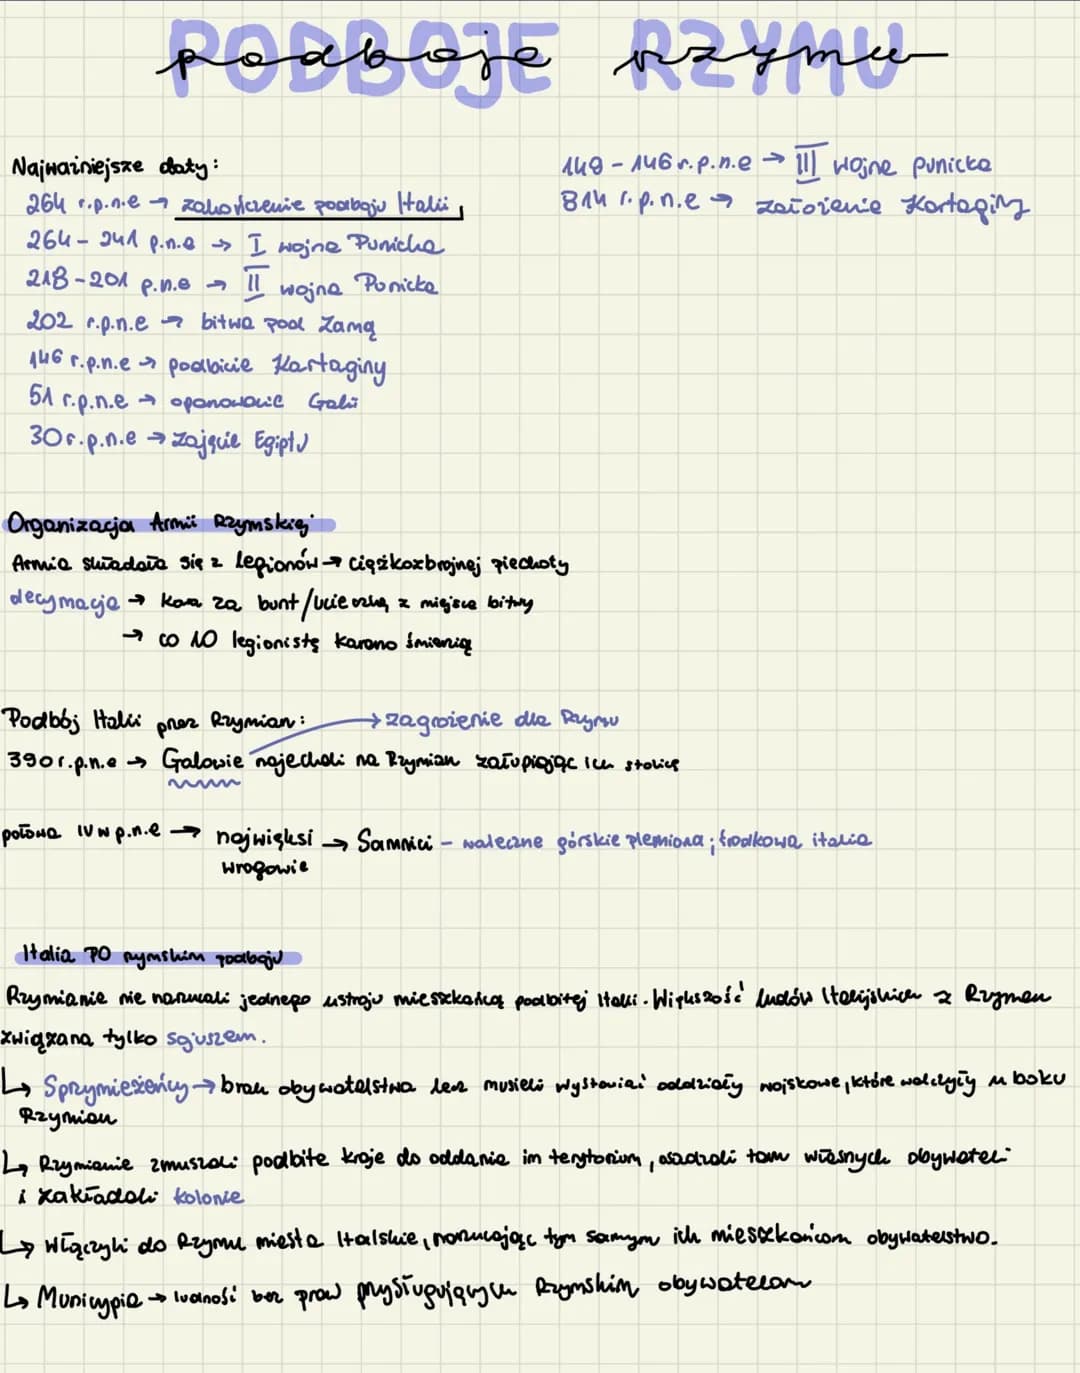 PODBOJE RZYMU
podboje rzymu
Najważniejsze daty:
264 r.p.n.e → zakończenie podboju Italii
264 - 241 p.n.e → I wojna Punicka
218-201 p.n.e → II wojna Punicka
202 r.p.n.e → bitwa pod Zamą
146 r.p.n.e → podbicie Kartaginy
51 r.p.n.e → opanowanie Galii
30 r.p.n.e → zajęcie Egiptu
149 - 146 r.p.n.e → III wojna punicka
814 r.p.n.e → założenie Kartaginy
Organizacja Armii Rzymskiej
Armia składała się z legionów → ciężkozbrojnej piechoty
decymacja → kara za bunt/ucieczkę z miejsca bitwy
→ co 10 legionistę karano śmiercią
Podbój Italii przez Rzymian:
→ zagrożenie dla Rzymu
390 r.p.n.e → Galowie najechali na Rzymian załupiając ich stolicę
połowa IV w p.n.e → najwięksi → Samnici - waleczne górskie plemiona; środkowa italia
wrogowie
Italia PO rzymskim podboju
Rzymianie nie narzucali jednego ustroju mieszkańcą podbitej Italii. Większość ludów Italijskich z Rzymem
związana tylko sojuszem.
↳ Sprzymierzeńcy → brak obywatelstwa lecz musieli wystawiać oddziały wojskowe, które walczyły u boku
Rzymian
↳ Rzymianie zmuszali podbite kraje do oddania im terytorium, osadzali tam własnych obywateli
i zakładali kolonie
↳ Włączyli do Rzymu miasta Italskie, narzucając tym samym ich mieszkańcom obywatelstwo.
↳ Municypia → ludność bez praw przysługujących Rzymskim obywatelom